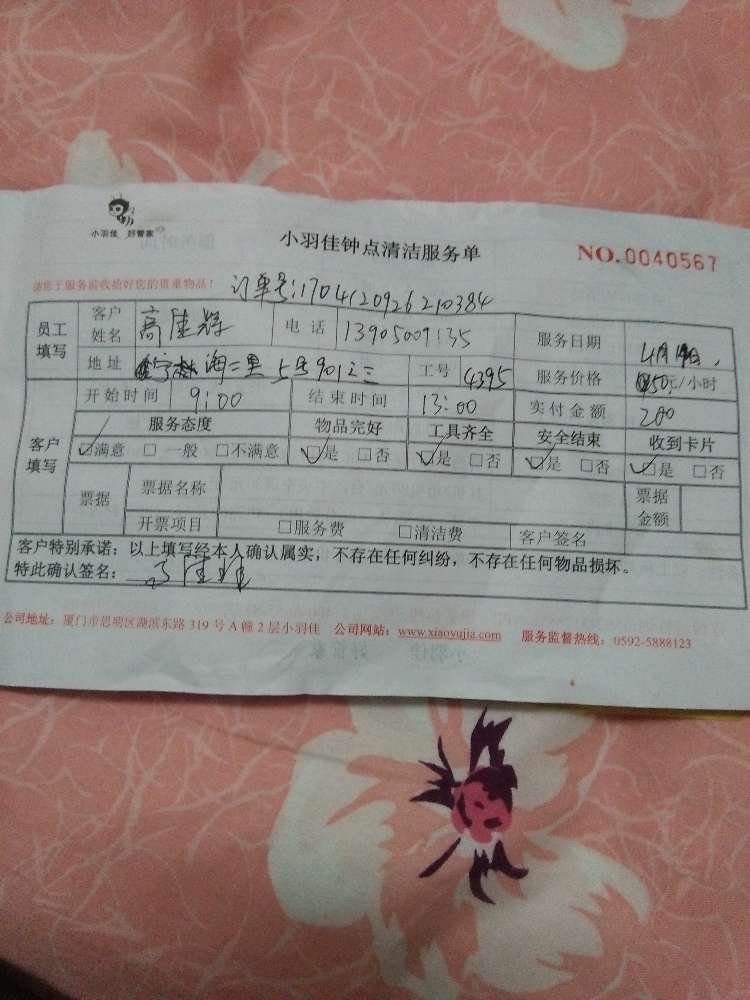 小羽佳 好管家
小羽佳钟点清洁服务单
NO.0040567
请您于服务前收拾好您的贵重物品!
订单号:170412092621 0384
员工填写 客户姓名 高佳辉 电话 13905009135 服务日期 4月
地址 海二里 5号901之三 工号 4395 服务价格 50元/小时
客户填写 开始时间 9:00 结束时间 13:00 实付金额 200
服务态度 物品完好 工具齐全 安全结束 收到卡片
☑满意 □一般 □不满意 ☑是 □否 ☑是 □否 ☑是 □否 ☑是 □否
票据 票据名称 票据金额
开票项目 □服务费 □清洁费 客户签名
客户特别承诺:以上填写经本人确认属实,不存在任何纠纷,不存在任何物品损坏。
特此确认签名:高佳辉
公司地址:厦门市思明区湖滨东路 319 号 A 幢 2 层小羽佳 公司网站:www.xiaoyujia.com 服务监督热线:0592-5888123